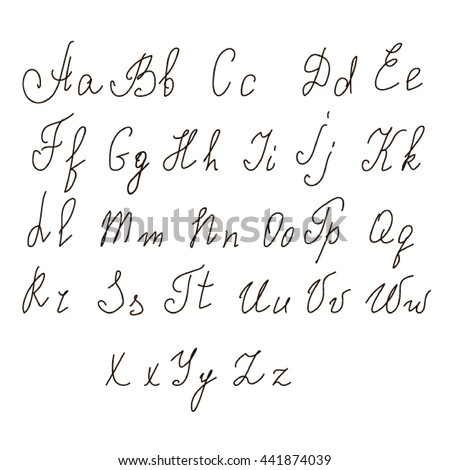 Aa Bb Cc Dd Ee
Ff Gg Hh Ii Jj Kk
Ll Mm Nn Oo Pp Qq
Rr Ss Tt Uu Vv Ww
Xx Yy Zz
shutterstock
IMAGE ID: 441874039
www.shutterstock.com